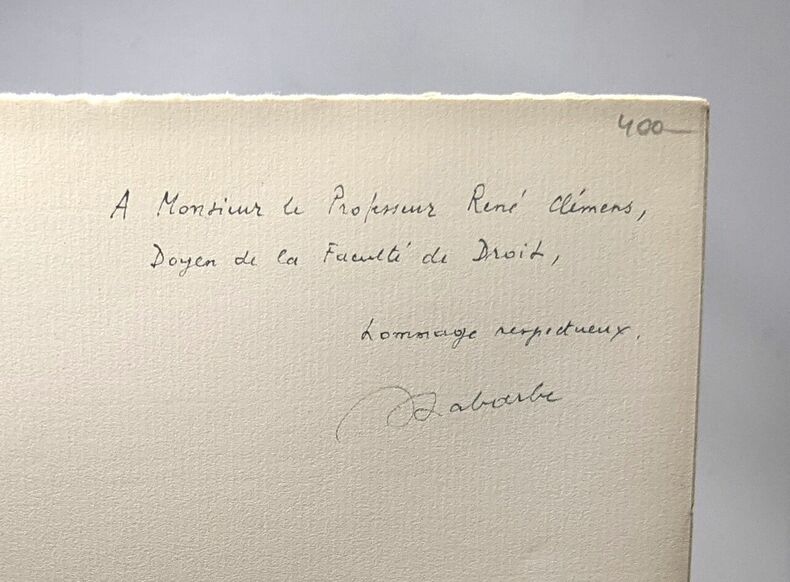 400
A Monsieur le Professeur René Clémens,
Doyen de la Faculté de Droit,
hommage respectueux.
Labarbe